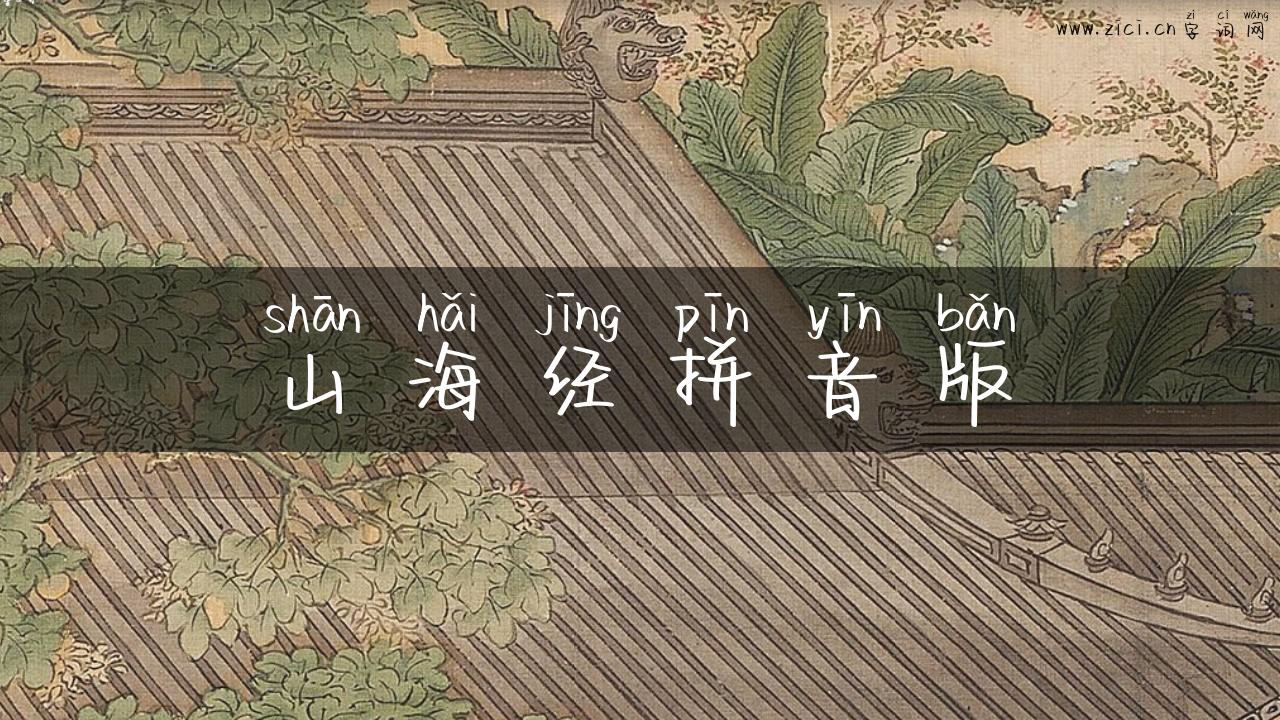 zì cí wǎng
www.zici.cn 字词网
shān hǎi jīng pīn yīn bǎn
山海经拼音版